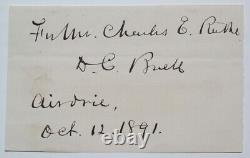 For Mr. Charles E.
D. C. Buell
Airdrie,
Oct. 12. 1891.